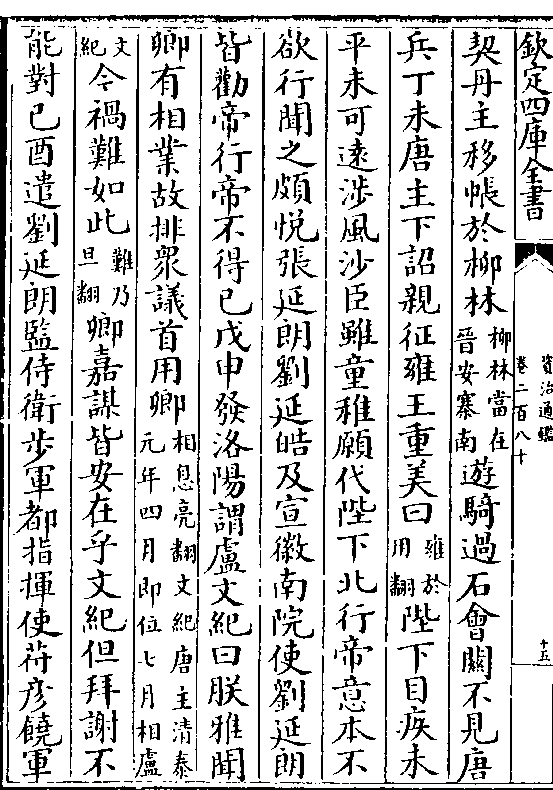 欽定四庫全書
資治通鑑
卷二百八十
十五
契丹主移帳於柳林柳林當在晉安寨南遊騎過石會關不見唐
兵丁未唐主下詔親征雍王重美曰雍於用翻陛下目疾未
平未可遠涉風沙臣雖童稚願代陛下北行帝意本不
欲行聞之頗悅張延朗劉延皓及宣徽南院使劉延朗
皆勸帝行帝不得已戊申發洛陽謂盧文紀曰朕雅聞
卿有相業故排衆議首用卿相息亮翻文紀唐主清泰元年四月即位七月相盧
文紀今禍難如此難乃旦翻卿嘉謀皆安在乎文紀但拜謝不
能對已酉遣劉延朗監侍衛步軍都指揮使苻彦饒軍